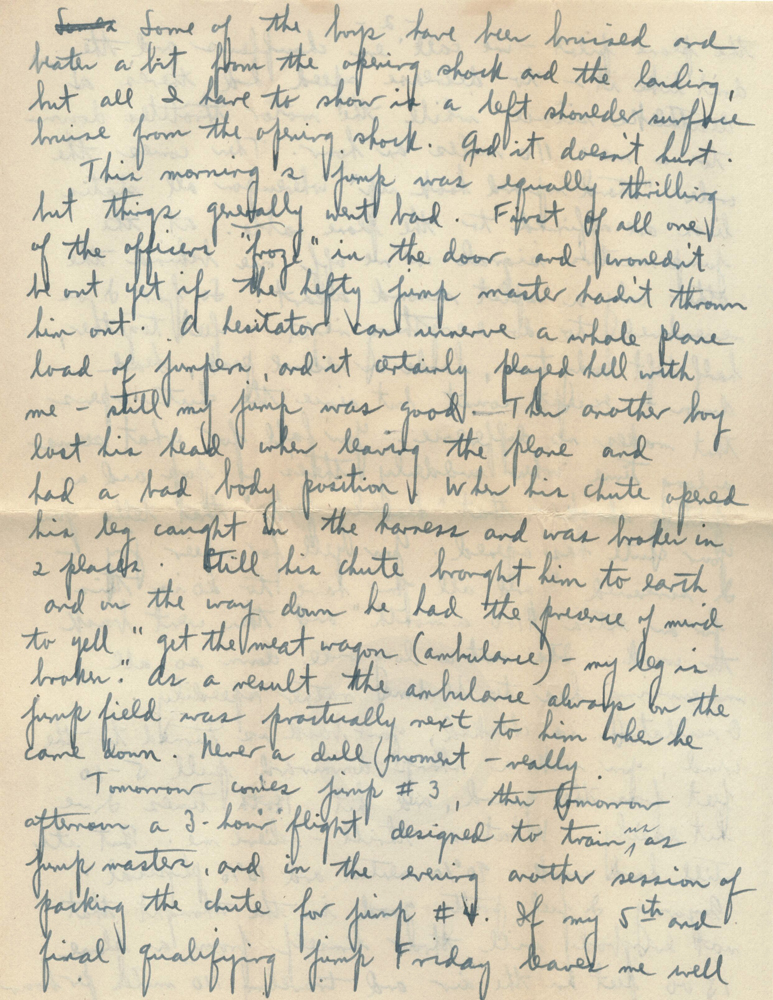 Some of the boys have been bruised and
beaten a bit from the opening shock and the landing,
but all I have to show is a left shoulder surface
bruise from the opening shock. And it doesn't hurt.
This morning's jump was equally thrilling
but things generally went bad. First of all one
of the officers "froze" in the door and wouldn't
be out yet if the hefty jump master hadn't thrown
him out. A hesitator can unnerve a whole plane
load of jumpers, and it certainly played hell with
me - still my jump was good. Then another boy
lost his head when leaving the plane and
had a bad body position. When his chute opened
his leg caught in the harness and was broken in
2 places. Still his chute brought him to earth
and on the way down he had the presence of mind
to yell "get the meat wagon (ambulance) - my leg is
broken." As a result the ambulance always on the
jump field was practically next to him when he
came down. Never a dull moment - really
Tomorrow comes jump #3, then tomorrow
afternoon a 3-hour flight designed to train us as
jump masters, and in the evening another session of
packing the chute for jump #4. If my 5th and
final qualifying jump Friday leaves me well